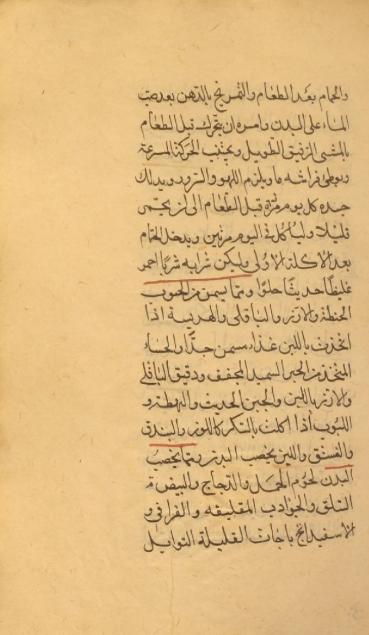 والحمام بعد الطعام والتمريخ بالدهن بعد صب
الماء على البدن وامره ان يتحرك قبل الطعام
بالمشي الرفيق الطويل ويجتنب الحركة المسرعة
ويوطى فراشه ما ويلزم اللهو والسرور ويدلك
جسده كل يوم مرة قبل الطعام الى ان يحمى
قليلا وليأكل في اليوم مرتين ويدخل الحمام
بعد الاكلة الاولى وليكن شرابه شرابا احمر
غليظا حديثا حلوا ومما يسمن من الحبوب
الحنطة والارز والباقلى والهريسة اذا
اتخذت باللبن غذاء مسمن جدا والحساء
المتخذ من الخبز السميد المجفف ودقيق الباقلى
والارز باللبن والجبن الحديث و
اللبوب اذا اكلت بالسكر كاللوز والبندق
والفستق واللبن يخصب البدن ومما يخصب
البدن لحوم الحمل والدجاج والبيض
و
الاسفيذباجات القليلة التوابل